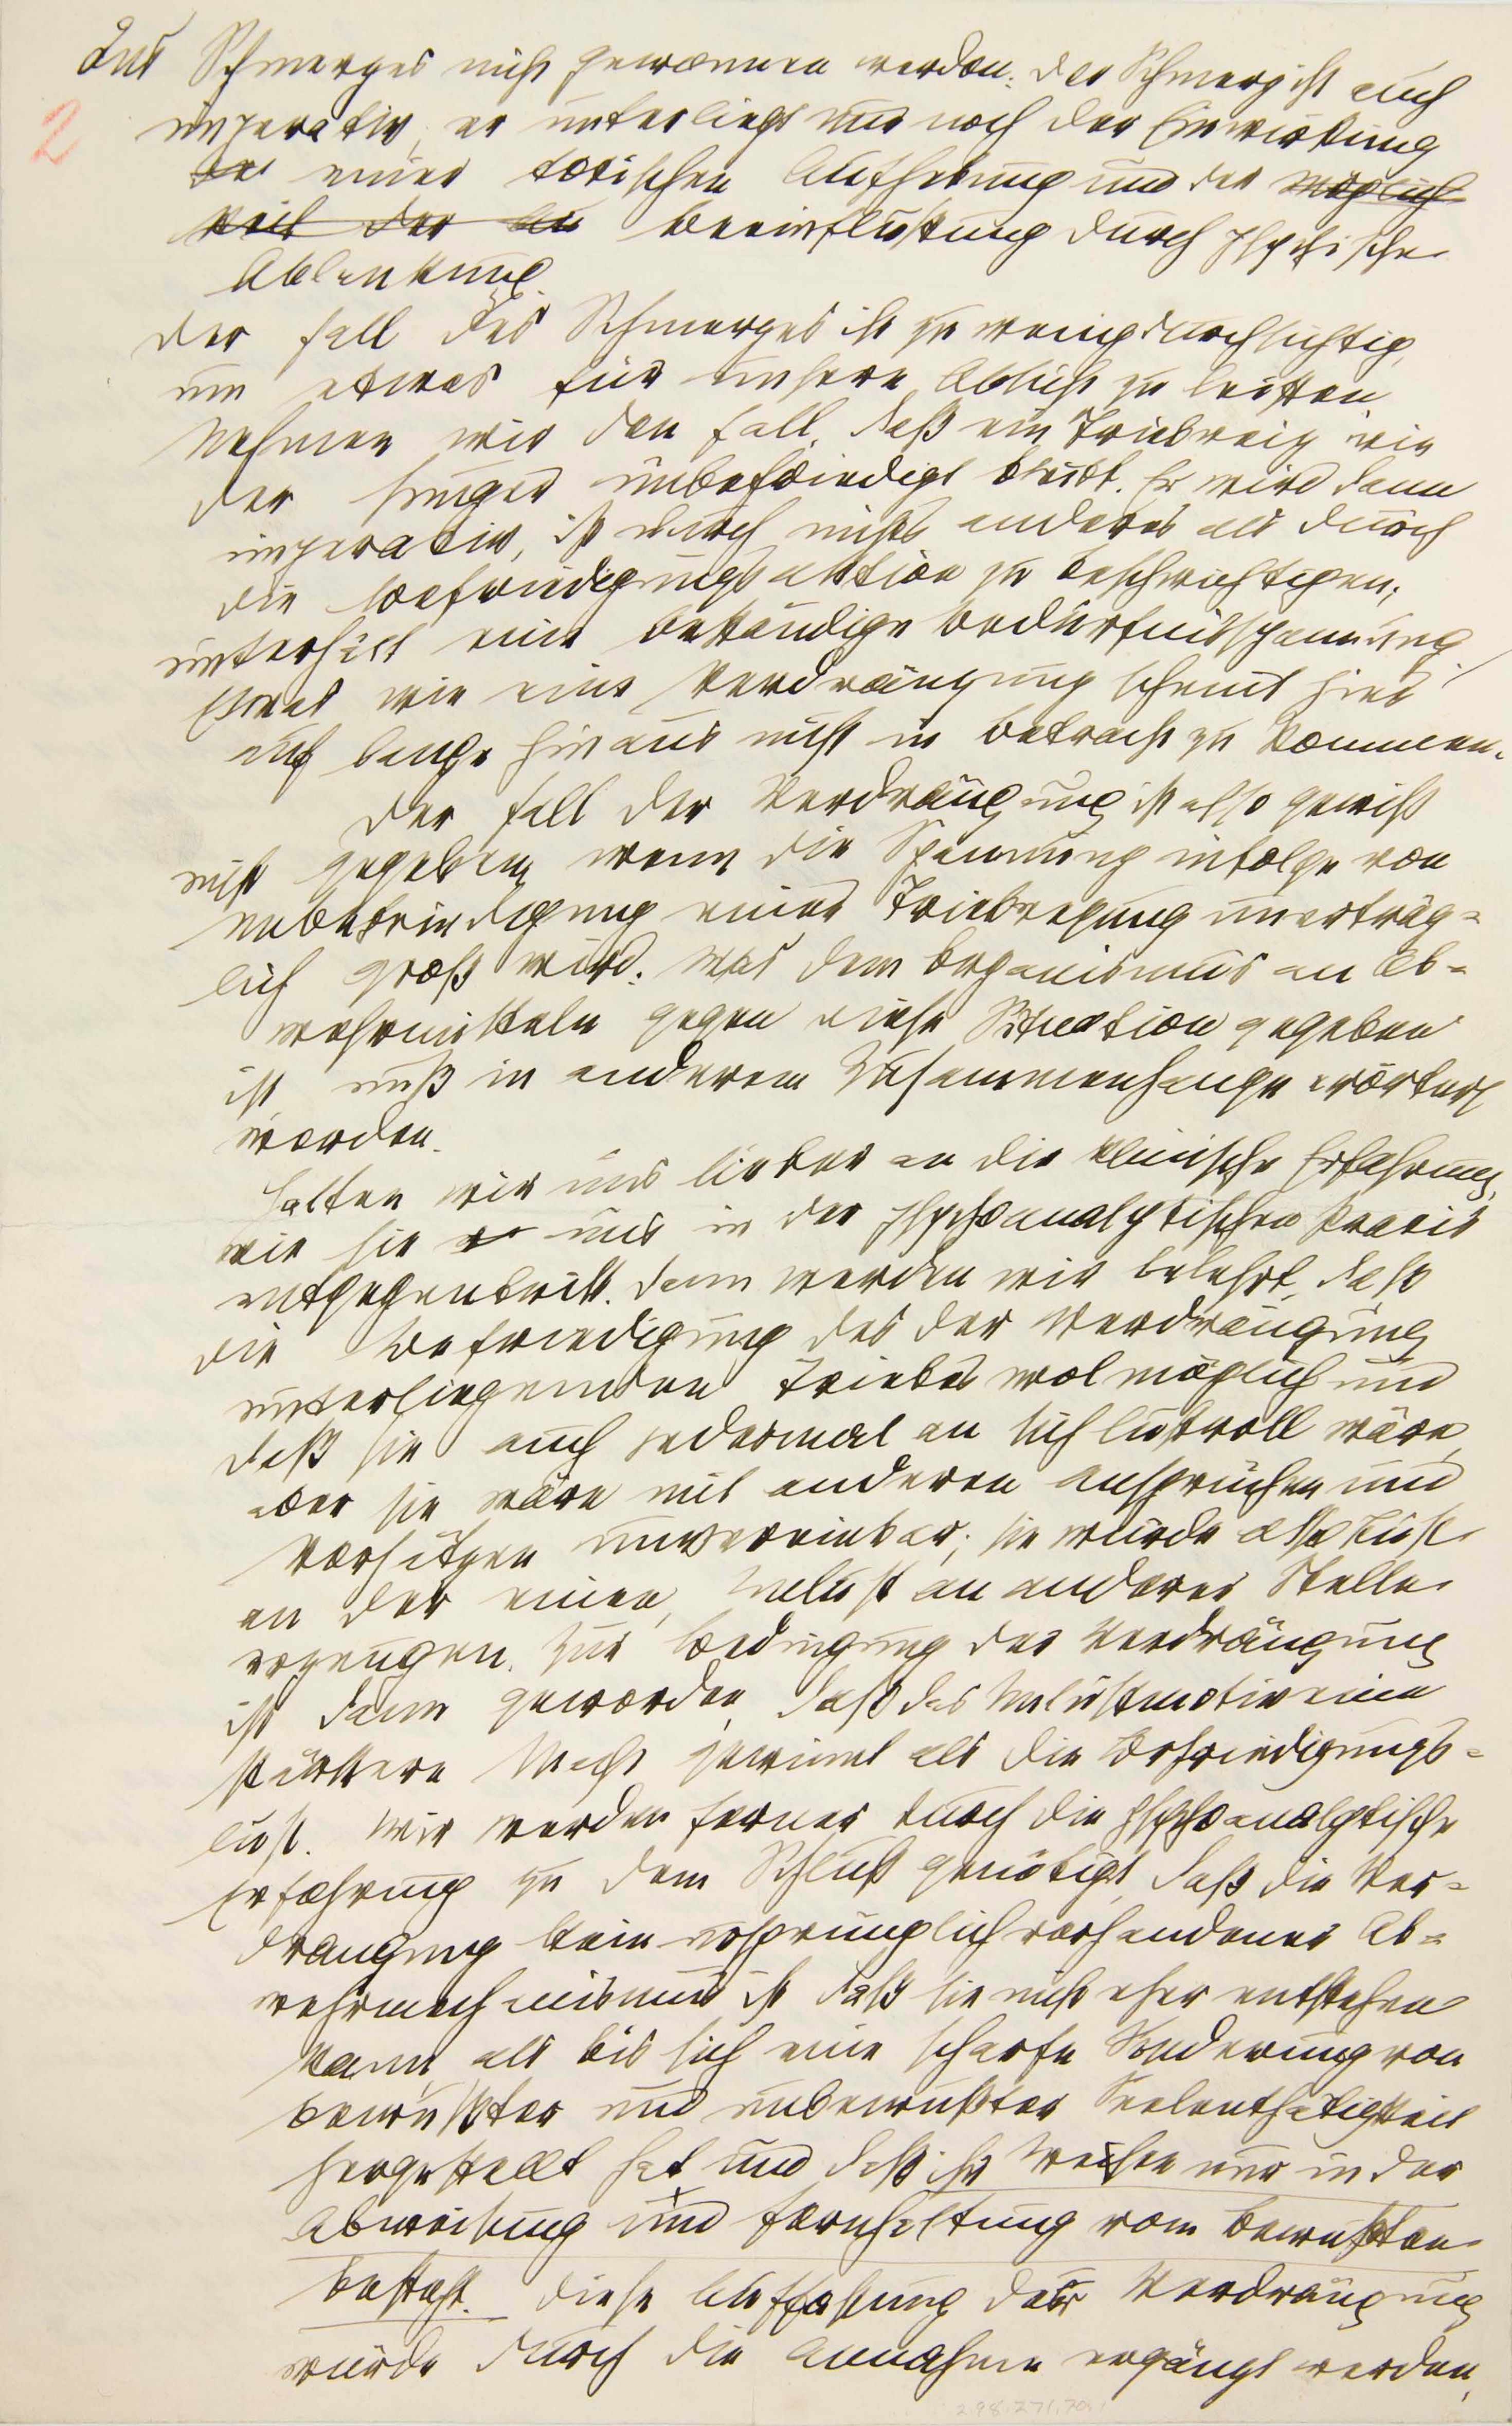 des Schmerzes nicht gewonnen werden. Der Schmerz ist auch
2
imperativ, er unterliegt nur noch der Einwirkung
der einer toxischen Aufhebung und der Möglich
keit der Be Beeinflußung durch psychische
Ablenkung.
Der Fall des Schmerzes ist zu wenig durchsichtig,
um etwas für unsere Absicht zu leisten.
Nehmen wir den Fall, daß ein Triebreiz wie
der Hunger unbefriedigt bleibt. Er wird dann
imperativ, ist durch nichts anderes als durch
die Befriedigungsaktion zu beschwichtigen,
unterhält eine beständige Bedürfnißspannung.
Etwas wie eine Verdrängung scheint hier
auf lange hinaus nicht in Betracht zu kommen.
Der Fall der Verdrängung ist also gewiß
nicht gegeben, wenn die Spannung infolge von
Unbefriedigung einer Triebregung unerträg=
lich groß wird. Was dem Organismus an Ab=
wehrmitteln gegen diese Situation gegeben
ist muß in anderem Zusammenhange erörtert
werden.
Halten wir uns lieber an die klinische Erfahrung,
wie sie uns in der psychoanalytischen Praxis
entgegentritt. Dann werden wir belehrt, daß
die Befriedigung des der Verdrängung
unterliegenden Triebes wol möglich und
daß sie auch jedesmal an sich lustvoll wäre,
aber sie wäre mit anderen Ansprüchen und
Vorsätzen unvereinbar; sie würde also Lust
an der einen, Unlust an anderer Stelle
erzeugen. Zur Bedingung der Verdrängung
ist dann geworden, daß das Unlustmotiv eine
stärkere Macht gewinnt als die Befriedigungs=
lust. Wir werden ferner durch die psychoanalytische
Erfahrung zu dem Schluß genötigt, daß die Ver=
drängung kein ursprünglich vorhandener Ab=
wehrmechanismus ist, daß sie nicht eher entstehen
kann, als bis sich eine scharfe Sonderung von
bewußter und unbewußter Seelenthätigkeit
hergestellt hat und daß ihr Wesen nur in der
Abweisung und Fernhaltung vom Bewußten
besteht. Diese Auffaßung der Verdrängung
würde durch die Annahme ergänzt werden,